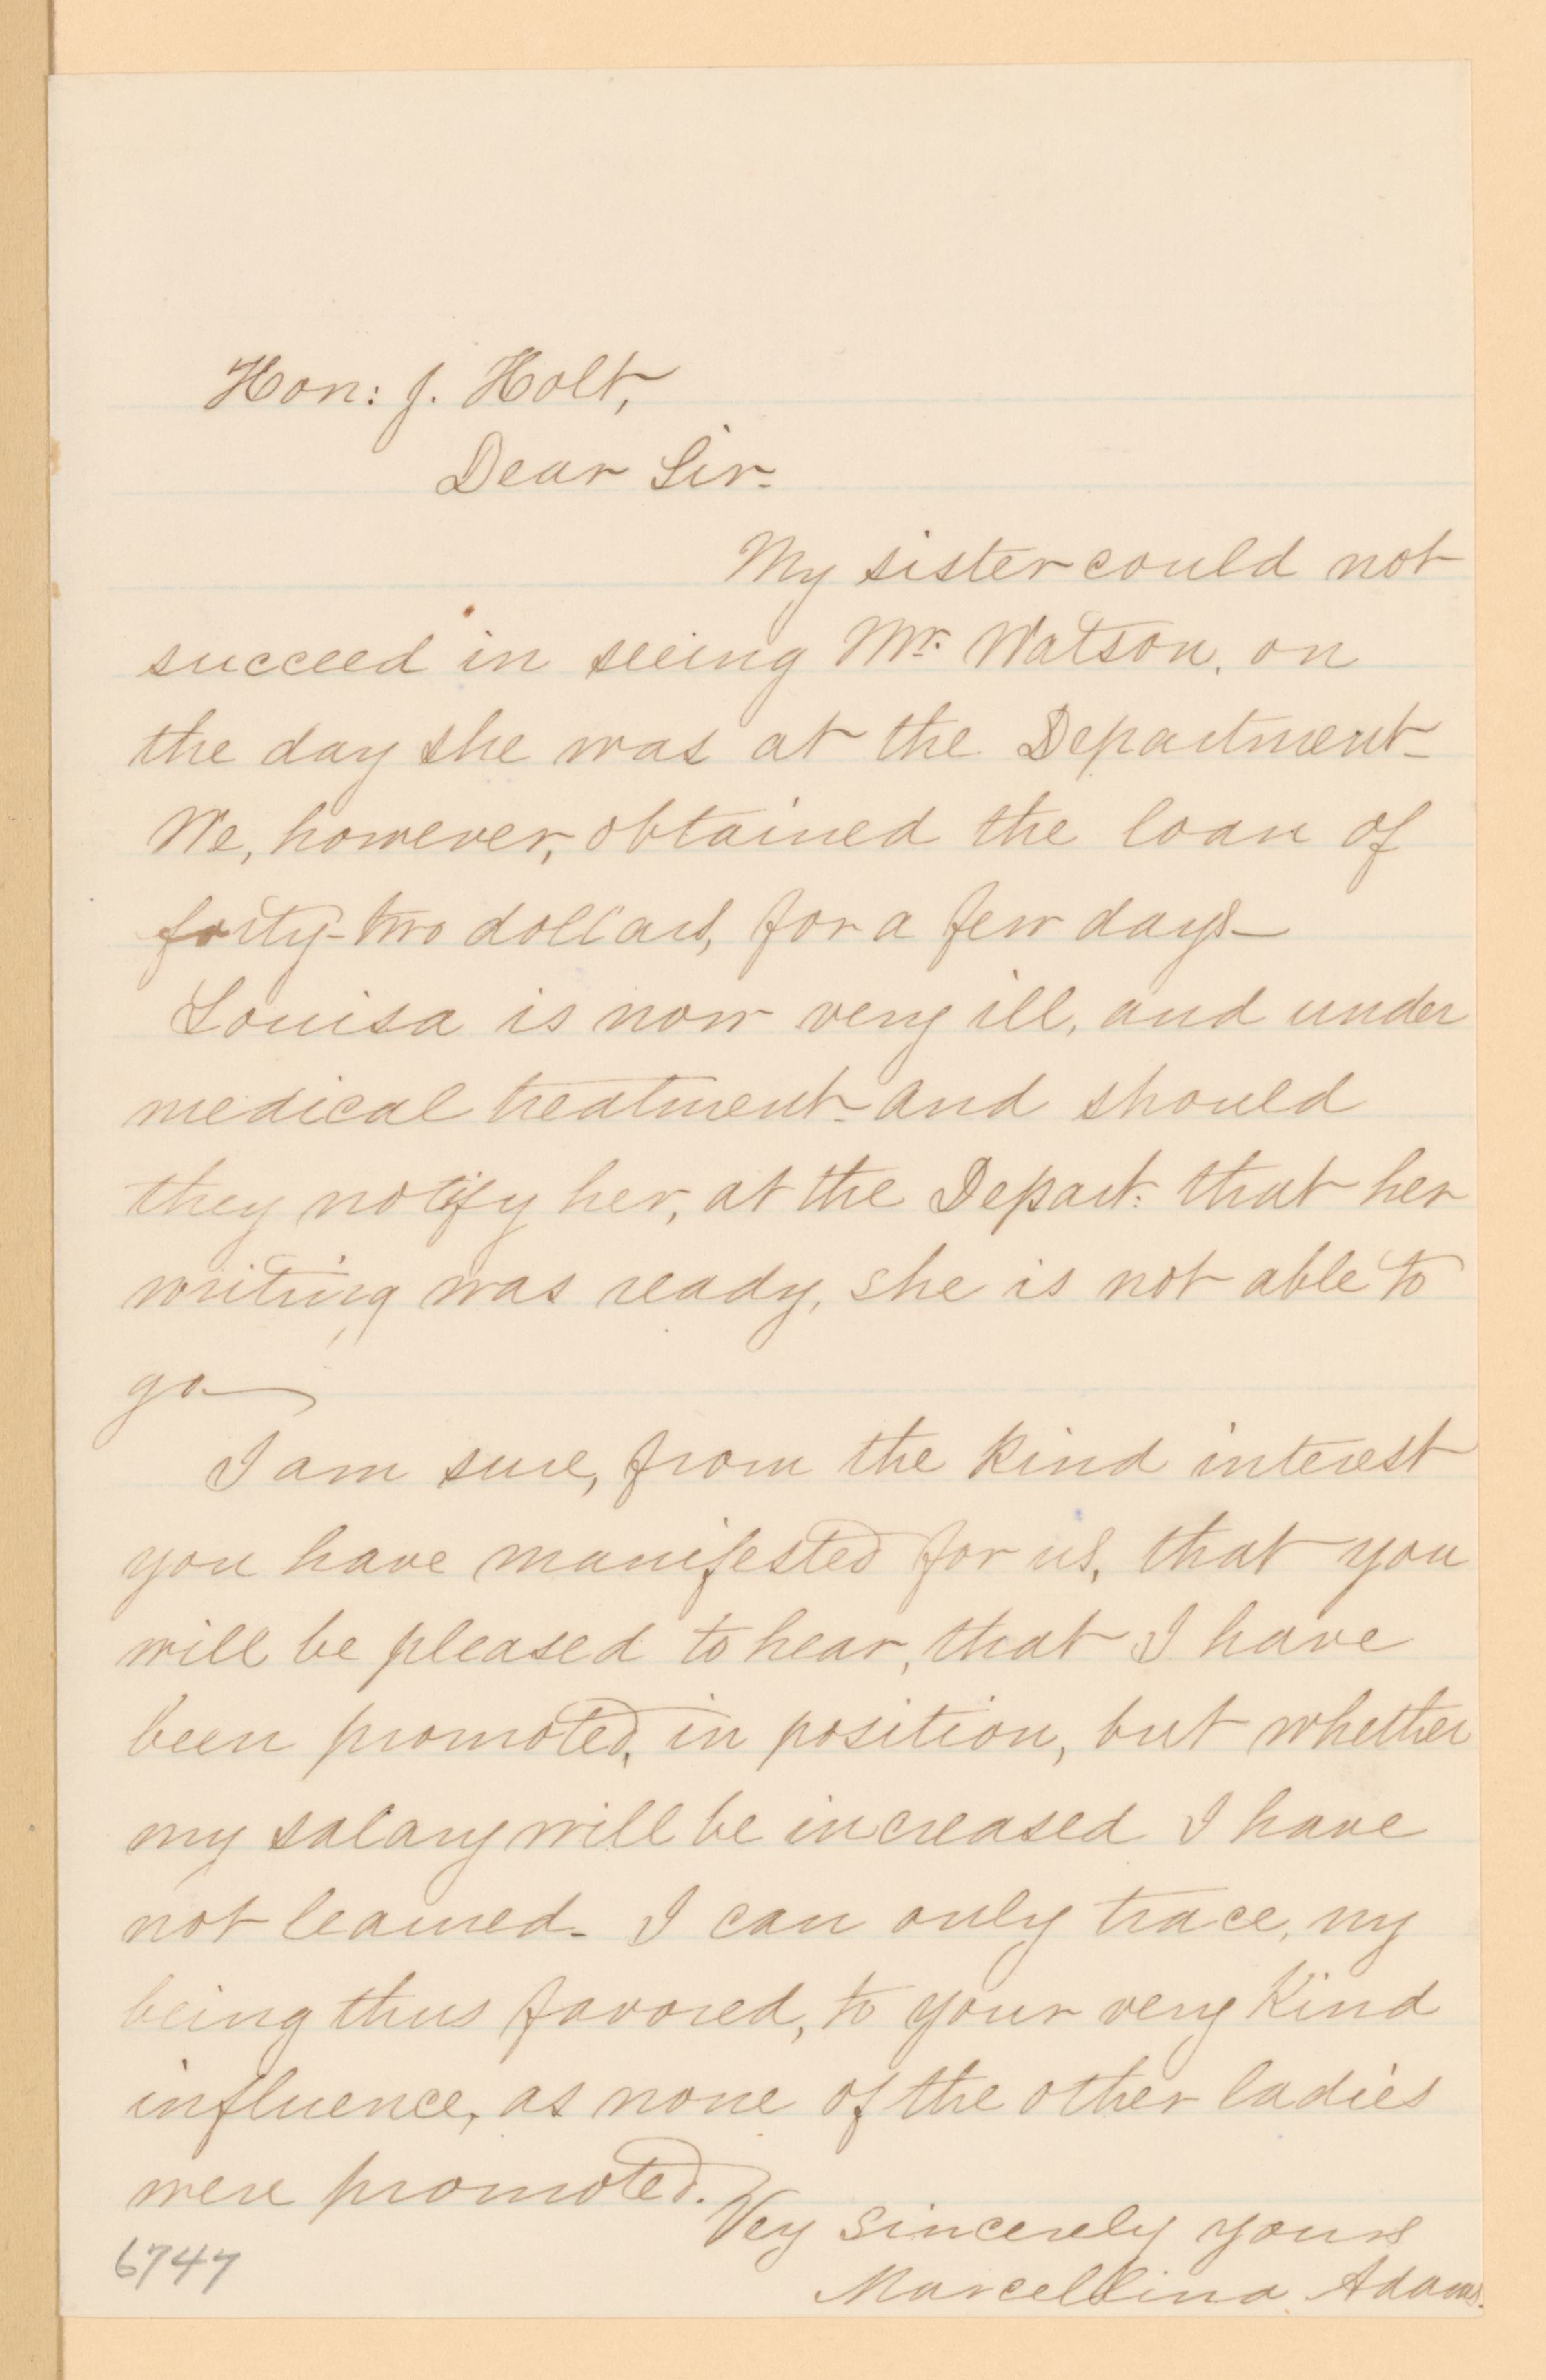 Hon: J. Holt,
Dear Sir.
My sister could not
succeed in seeing Mr. Watson, on
the day she was at the Department_
We, however, obtained the loan of
forty-two dollars, for a few days_
Louisa is now very ill, and under
medical treatment_ and should
they notify her, at the Depart: that her
writing was ready, she is not able to
go_
I am sure, from the kind interest
you have manifested for us, that you
will be pleased to hear, that I have
been promoted, in position, but whether
my salary will be increased I have
not learned_ I can only trace, my
being thus favored, to your very kind
influence, as none of the other ladies
were promoted.
Very sincerely yours
Marcellina Adams.
6747